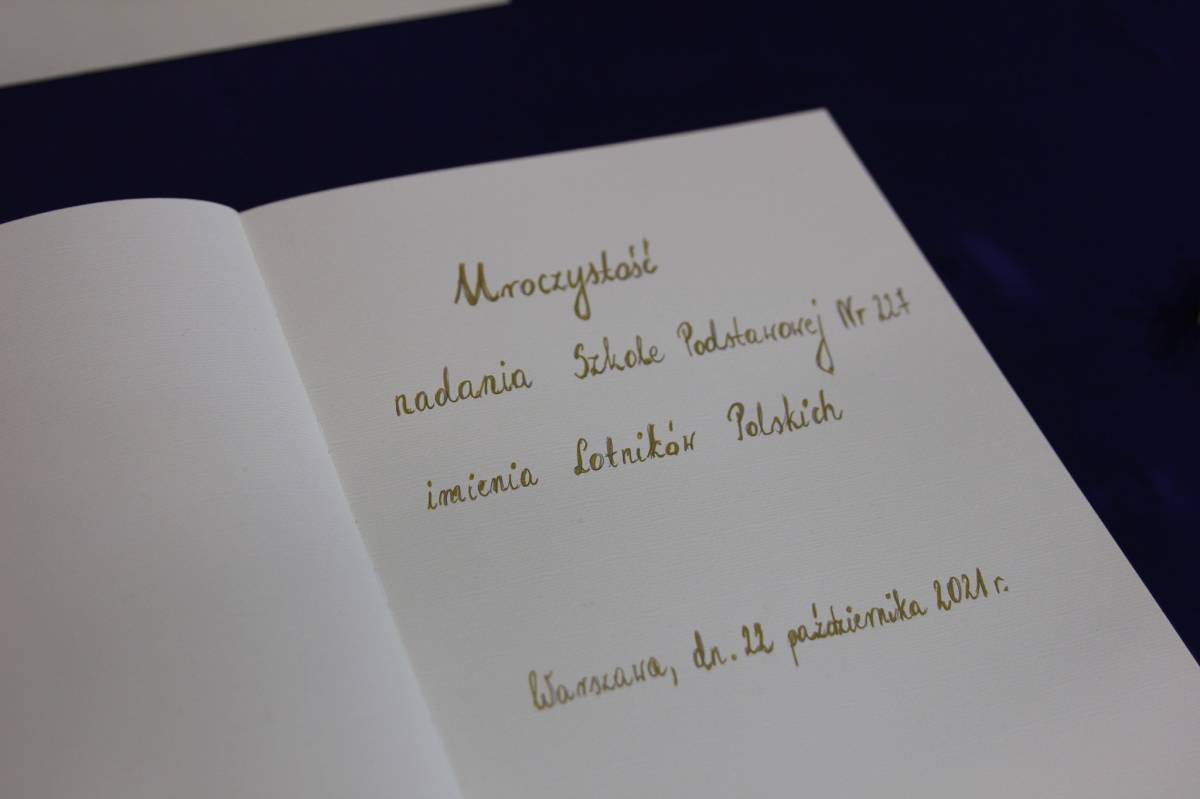 Uroczystość
nadania Szkole Podstawowej Nr 227
imienia Lotników Polskich
Warszawa, dn. 22 października 2021 r.